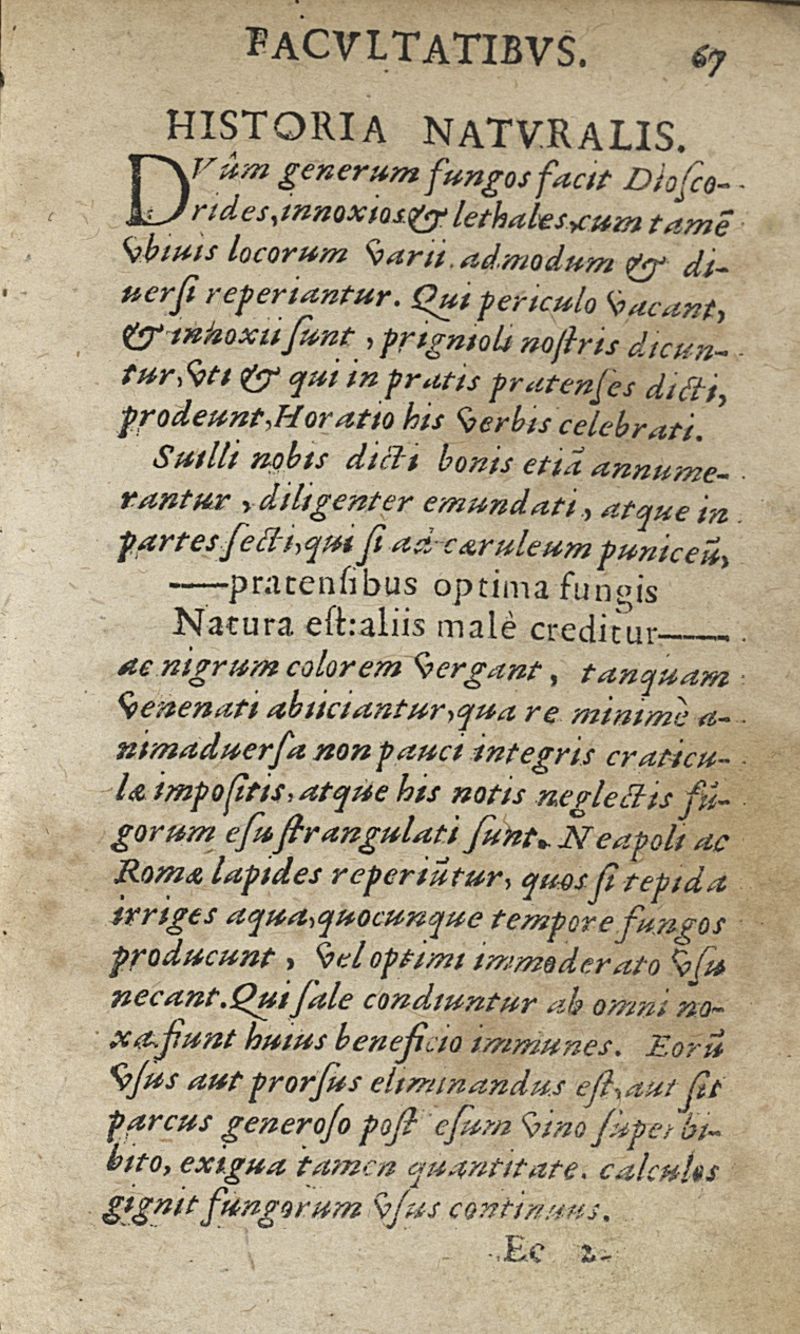 FACVLTATIBVS. 67
HISTORIA NATVRALIS.
DVûm generum fungos facit Dioſco-
rides, innoxios & lethales, cum tamẽ
vbiuis locorum varii admodum & di-
uerſi reperiantur. Qui periculo vacant,
& innoxii ſunt, prignioli noſtris dicun-
tur, vti & qui in pratis pratenſes dicti,
prodeunt, Horatio his verbis celebrati.
Suilli nobis dicti bonis etiã annume-
rantur, diligenter emundati, atque in
partes ſecti, qui ſi ad cæruleum puniceũ,
——pratenſibus optima fungis
Natura eſt: aliis malè creditur——
ac nigrum colorem vergant, tanquam
venenati abiiciantur, qua re minimè a-
nimaduerſa non pauci integris craticu-
læ impoſitis, atque his notis neglectis fũ-
gorum eſu ſtrangulati ſunt. Neapoli ac
Romæ lapides reperiũtur, quos ſi tepida
irriges aqua, quocunque tempore fungos
producunt, vel optimi immoderato vſu
necant. Qui ſale condiuntur ab omni no-
xa fiunt huius beneficio immunes. Eorũ
vſus aut prorſus eliminandus eſt, aut ſit
parcus generoſo poſt eſum vino ſuperbi-
bito, exigua tamen quantitate. calculos
gignit fungorum vſus continuus.
Ee 2